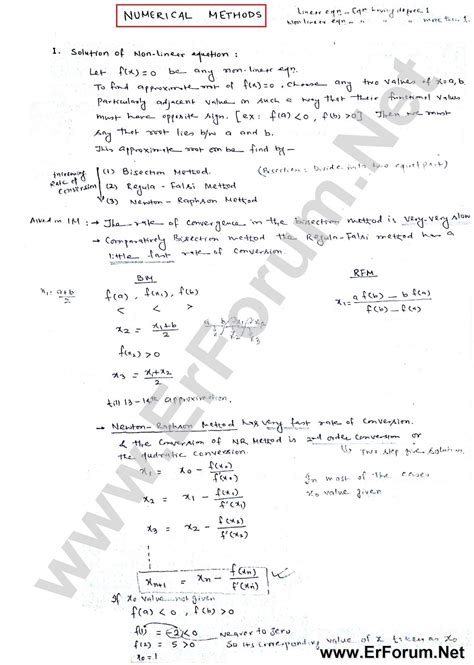 NUMERICAL METHODS
Linear eqn - Eqn having degree 1
Non linear eqn - " " " more than 1.
1. Solution of Non-linear equation :
Let f(x)=0 be any non-linear eqn.
To find approximate root of f(x)=0, choose any two values of x=a,b,
particularly adjacent value in such a way that their functional values
must have opposite sign. [ex: f(a)<0, f(b)>0] Then we must
say that root lies b/w a and b.
This approximate root can be find by -
Increasing Rate of Conversion
(1) Bisection Method. (Bisection: Divide into two equal part)
(2) Regula - Falsi Method
(3) Newton - Raphson Method
Asked in 1M : → The rate of convergence in the bisection method is very-very slow
→ Comparatively Bisection method the Regula-Falsi method has a
little fast rate of conversion.
BM
RFM
x₁ = a+b/2
f(a), f(x₁), f(b)
< < >
x₁ = a f(b) - b f(a) / f(b) - f(a)
x₂ = x₁+b/2
f(x₂) > 0
x₃ = x₁+x₂/2
till 13-14th approximation.
→ Newton-Raphson Method has very fast rate of conversion.
& the conversion of NR Method is 2nd order conversion or
the quadratic conversion.
↳ Two step give solution.
x₁ = x₀ - f(x₀)/f'(x₀)
In most of the cases
x₀ value given
x₂ = x₁ - f(x₁)/f'(x₁)
x₃ = x₂ - f(x₂)/f'(x₂)
xₙ₊₁ = xₙ - f(xₙ)/f'(xₙ) ✓
If x₀ value not given
f(a) < 0, f(b) > 0
f(1) = -2 < 0 nearer to zero
f(2) = 5 > 0 So its corresponding value of x taken as x₀
x₀ = 1
www.ErForum.Net
www.ErForum.Net